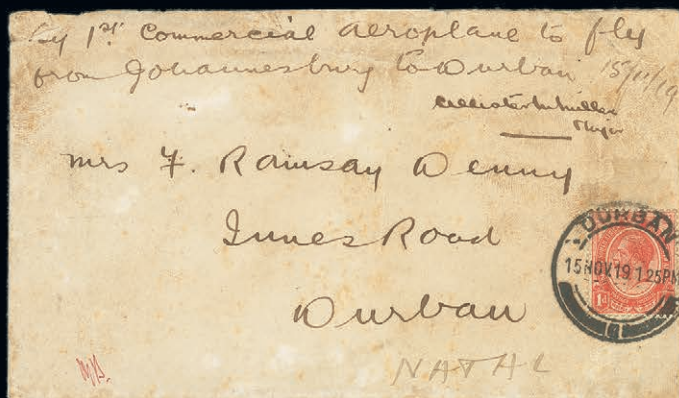 By 1st Commercial aeroplane to fly
from Johannesburg to Durban 15/11/19
Allister M Miller
Major
Mrs F. Ramsay Denny
Innes Road
Durban
NATAL
DURBAN
15 NOV 19 1 25 PM
1d